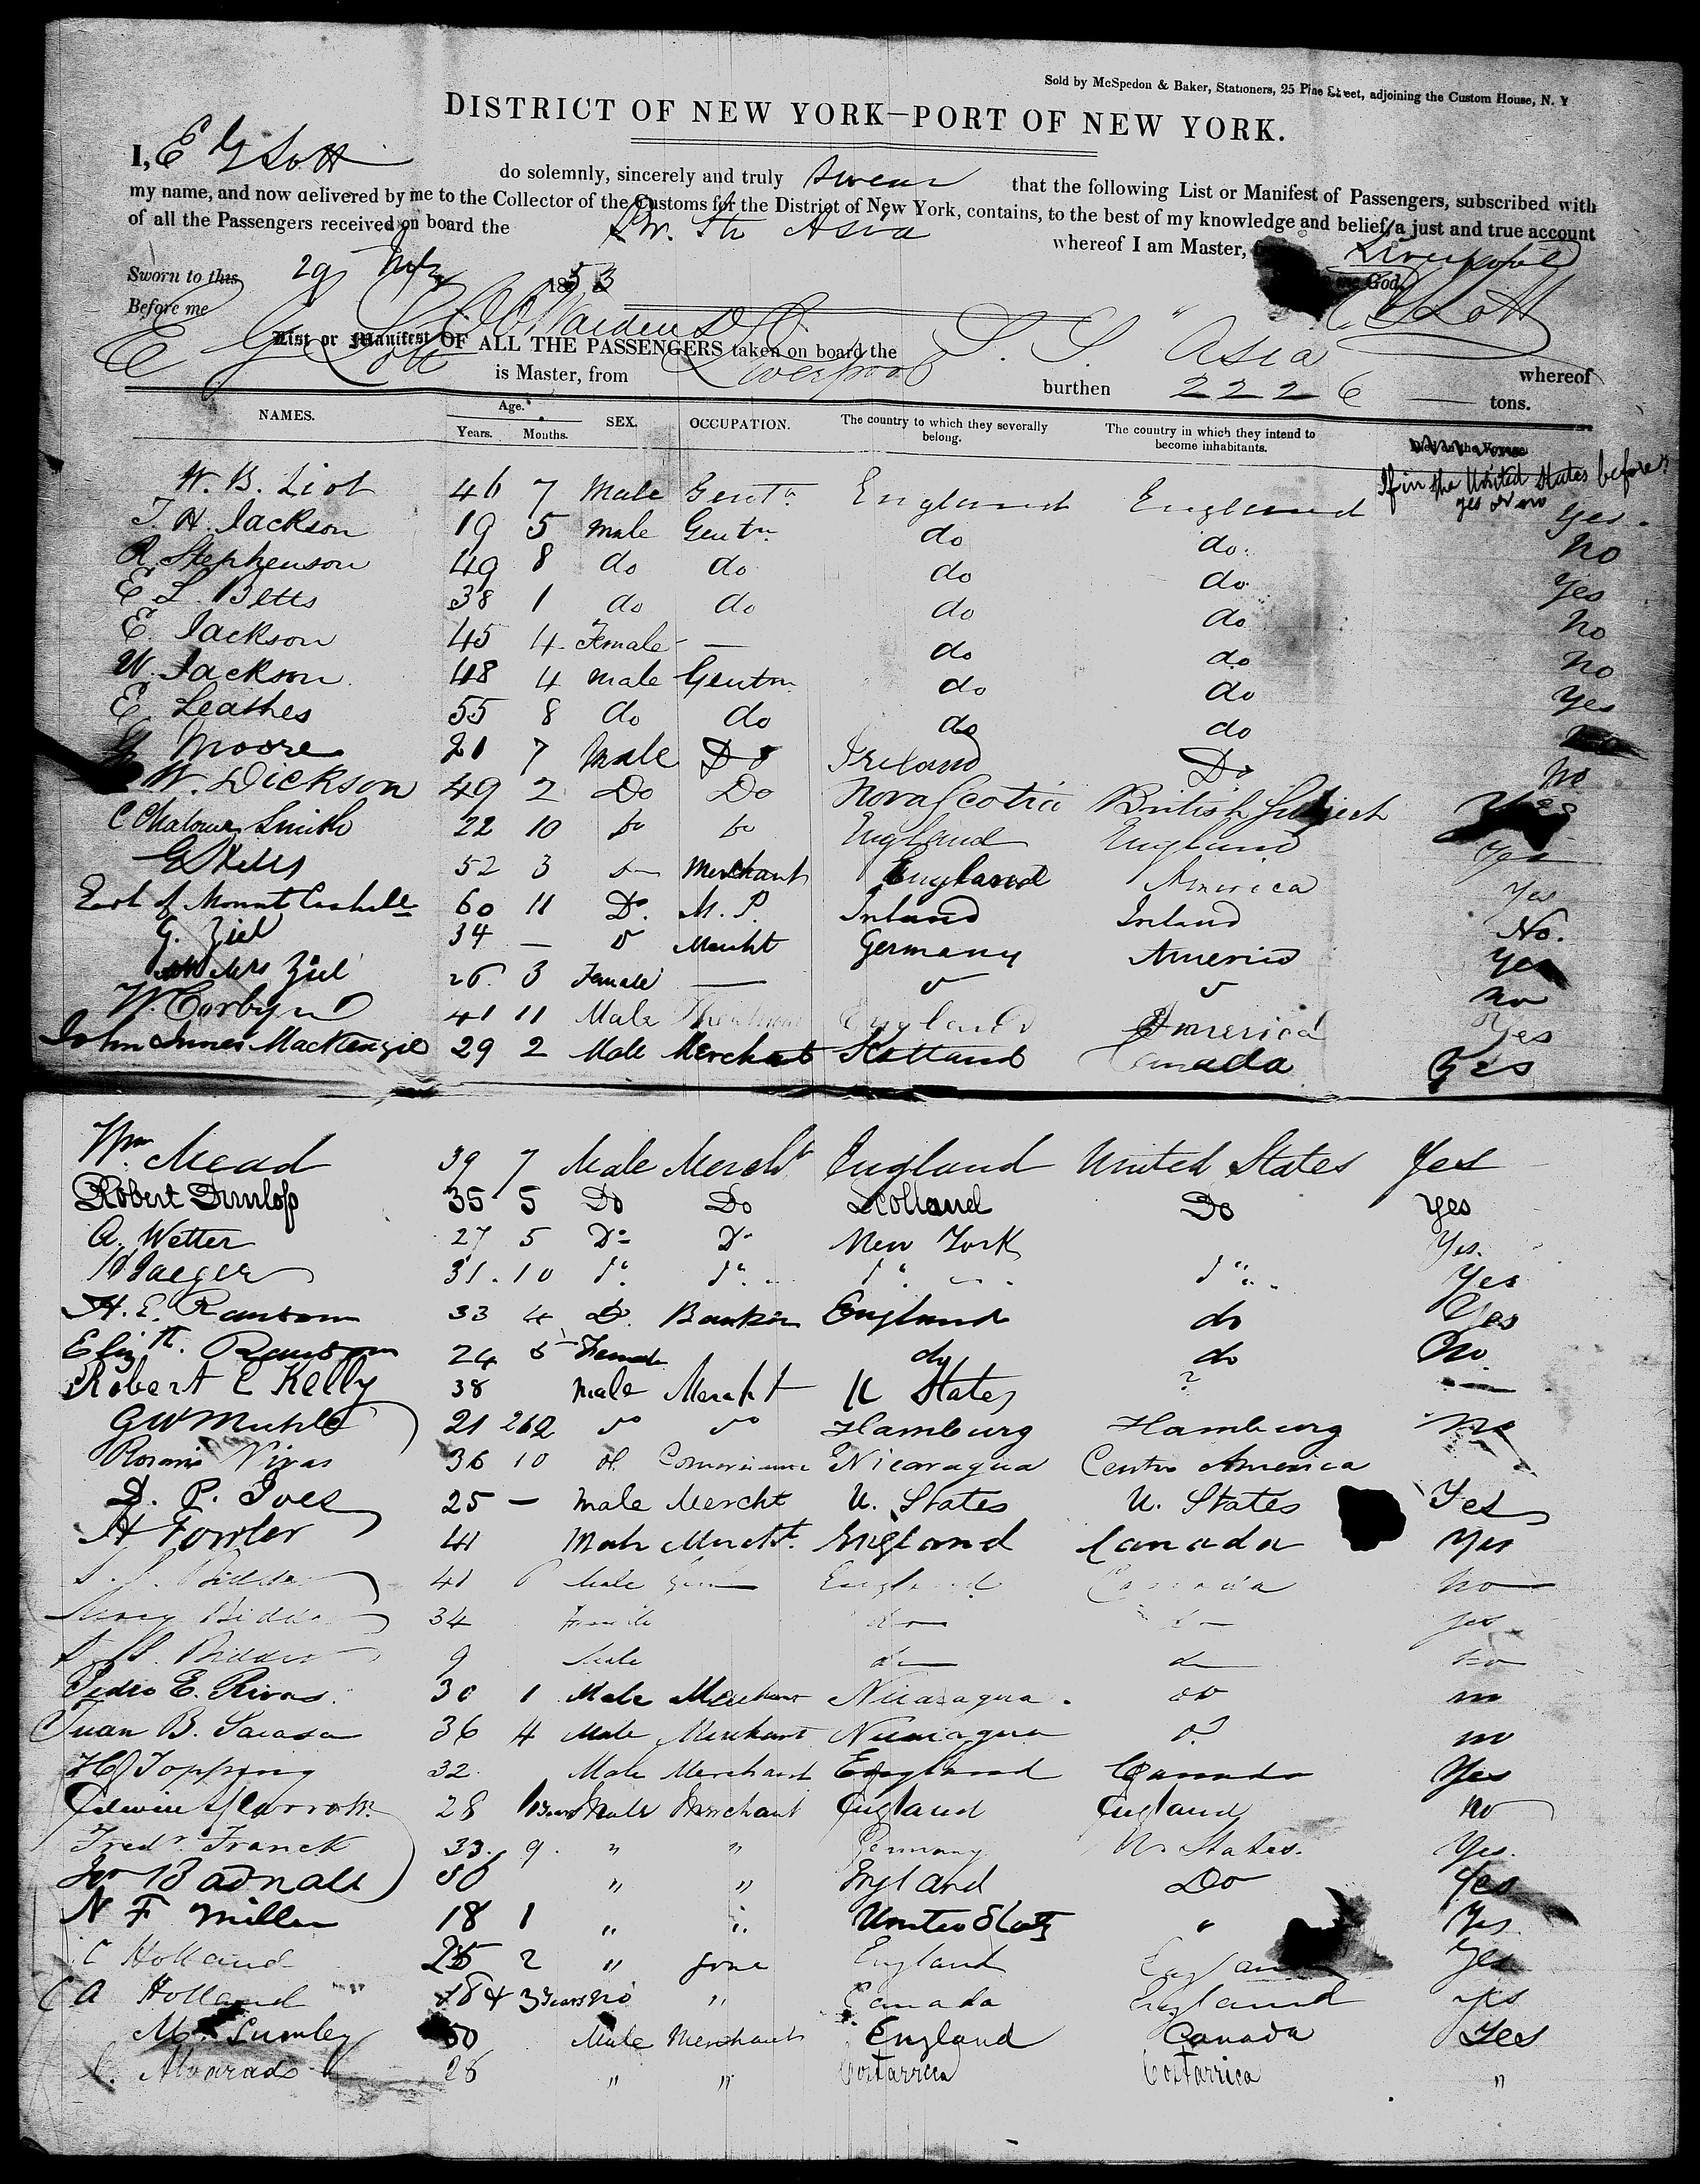 Sold by McSpedon & Baker, Stationers, 25 Pine Street, adjoining the Custom House, N. Y
DISTRICT OF NEW YORK—PORT OF NEW YORK.
I, E G Lott do solemnly, sincerely and truly swear that the following List or Manifest of Passengers, subscribed with
my name, and now delivered by me to the Collector of the Customs for the District of New York, contains, to the best of my knowledge and belief, a just and true account
of all the Passengers received on board the Br. Str Asia whereof I am Master, Liverpool
Sworn to this 29 1853 God.
Before me E G Lott
List or Manifest OF ALL THE PASSENGERS taken on board the S. S. " Asia whereof
E G Lott is Master, from Liverpool burthen 2226 tons.
NAMES. Age. Years. Months. SEX. OCCUPATION. The country to which they severally belong. The country in which they intend to become inhabitants. Died on the Voyage
If in the United States before? yes or no
W. B. Liot 46 7 Male Gentn England England Yes.
T. H. Jackson 19 5 Male Gentn do do. no
R. Stephenson 49 8 do do do do Yes
E L. Betts 38 1 do do do do no
E. Jackson 45 4 Female — do do no
W. Jackson 48 4 Male Gentm do do Yes
E Leathes 55 8 do do do do
Moore 21 7 Male Do Ireland Do no
W. Dickson 49 2 Do Do Nova Scotia British Subject Yes
C Smith 22 10 Do Do England England Yes
52 3 Do Merchant England America Yes
Earl of Mount Cashell 60 11 Do. M. P. Ireland Ireland No.
G. Ziel 34 — Do Mercht Germany America Yes
Mrs Ziel 26 3 Female — Do Do no
W. Corbyn 41 11 Male England America Yes
John Innes MacKenzie 29 2 Male Merchant Scotland Canada Yes
Wm Mead 39 7 Male Mercht England United States Yes
Robert Dunlop 35 5 Do Do Scotland Do Yes
A. Wetter 27 5 Do Do New York Yes.
Jaeger 31. 10 Do Do Do Do Yes
H. E. Ransom 33 4 Do Banker England do Yes
Elizth. Ransom 24 5 Female do do No
Robert C Kelly 38 Male Mercht U States ? —
G W Muhle 21 Do Do Hamburg Hamburg No
Rivas 36 10 Nicaragua Centro America
D. P. Ives 25 — Male Mercht U. States U. States Yes
H Fowler 41 Male Mercht. England Canada Yes
Bidder 41 Male England Canada no
Bidder 34 Female do do yes
Bidder 9 Male do do no
Pedro E. Rivas. 30 1 Male Merchant Nicaragua. do no
Juan B. Sacasa 36 4 Male Merchant Nicaragua do no
H Topping 32. Male Merchant England Canada Yes
Edwin 28 Male Merchant England England no
Fredr. Franck 33. 9. " " Germany U. States. Yes.
Jn Badnall 36 " " England Do Yes
N F Miller 18 1 " " United States " Yes
C Holland 25 2 " None England England Yes
C A Holland 18 & 3 Years no " Canada England yes
Mr Lumley 50 Male Merchant England Canada Yes
Alvarado 28 " " Costarrica Costarrica "